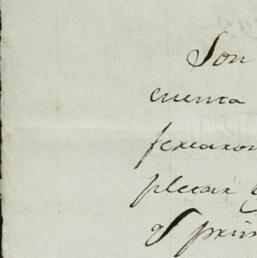 Son
cuenta
fexaron
plear y
qͤ prin